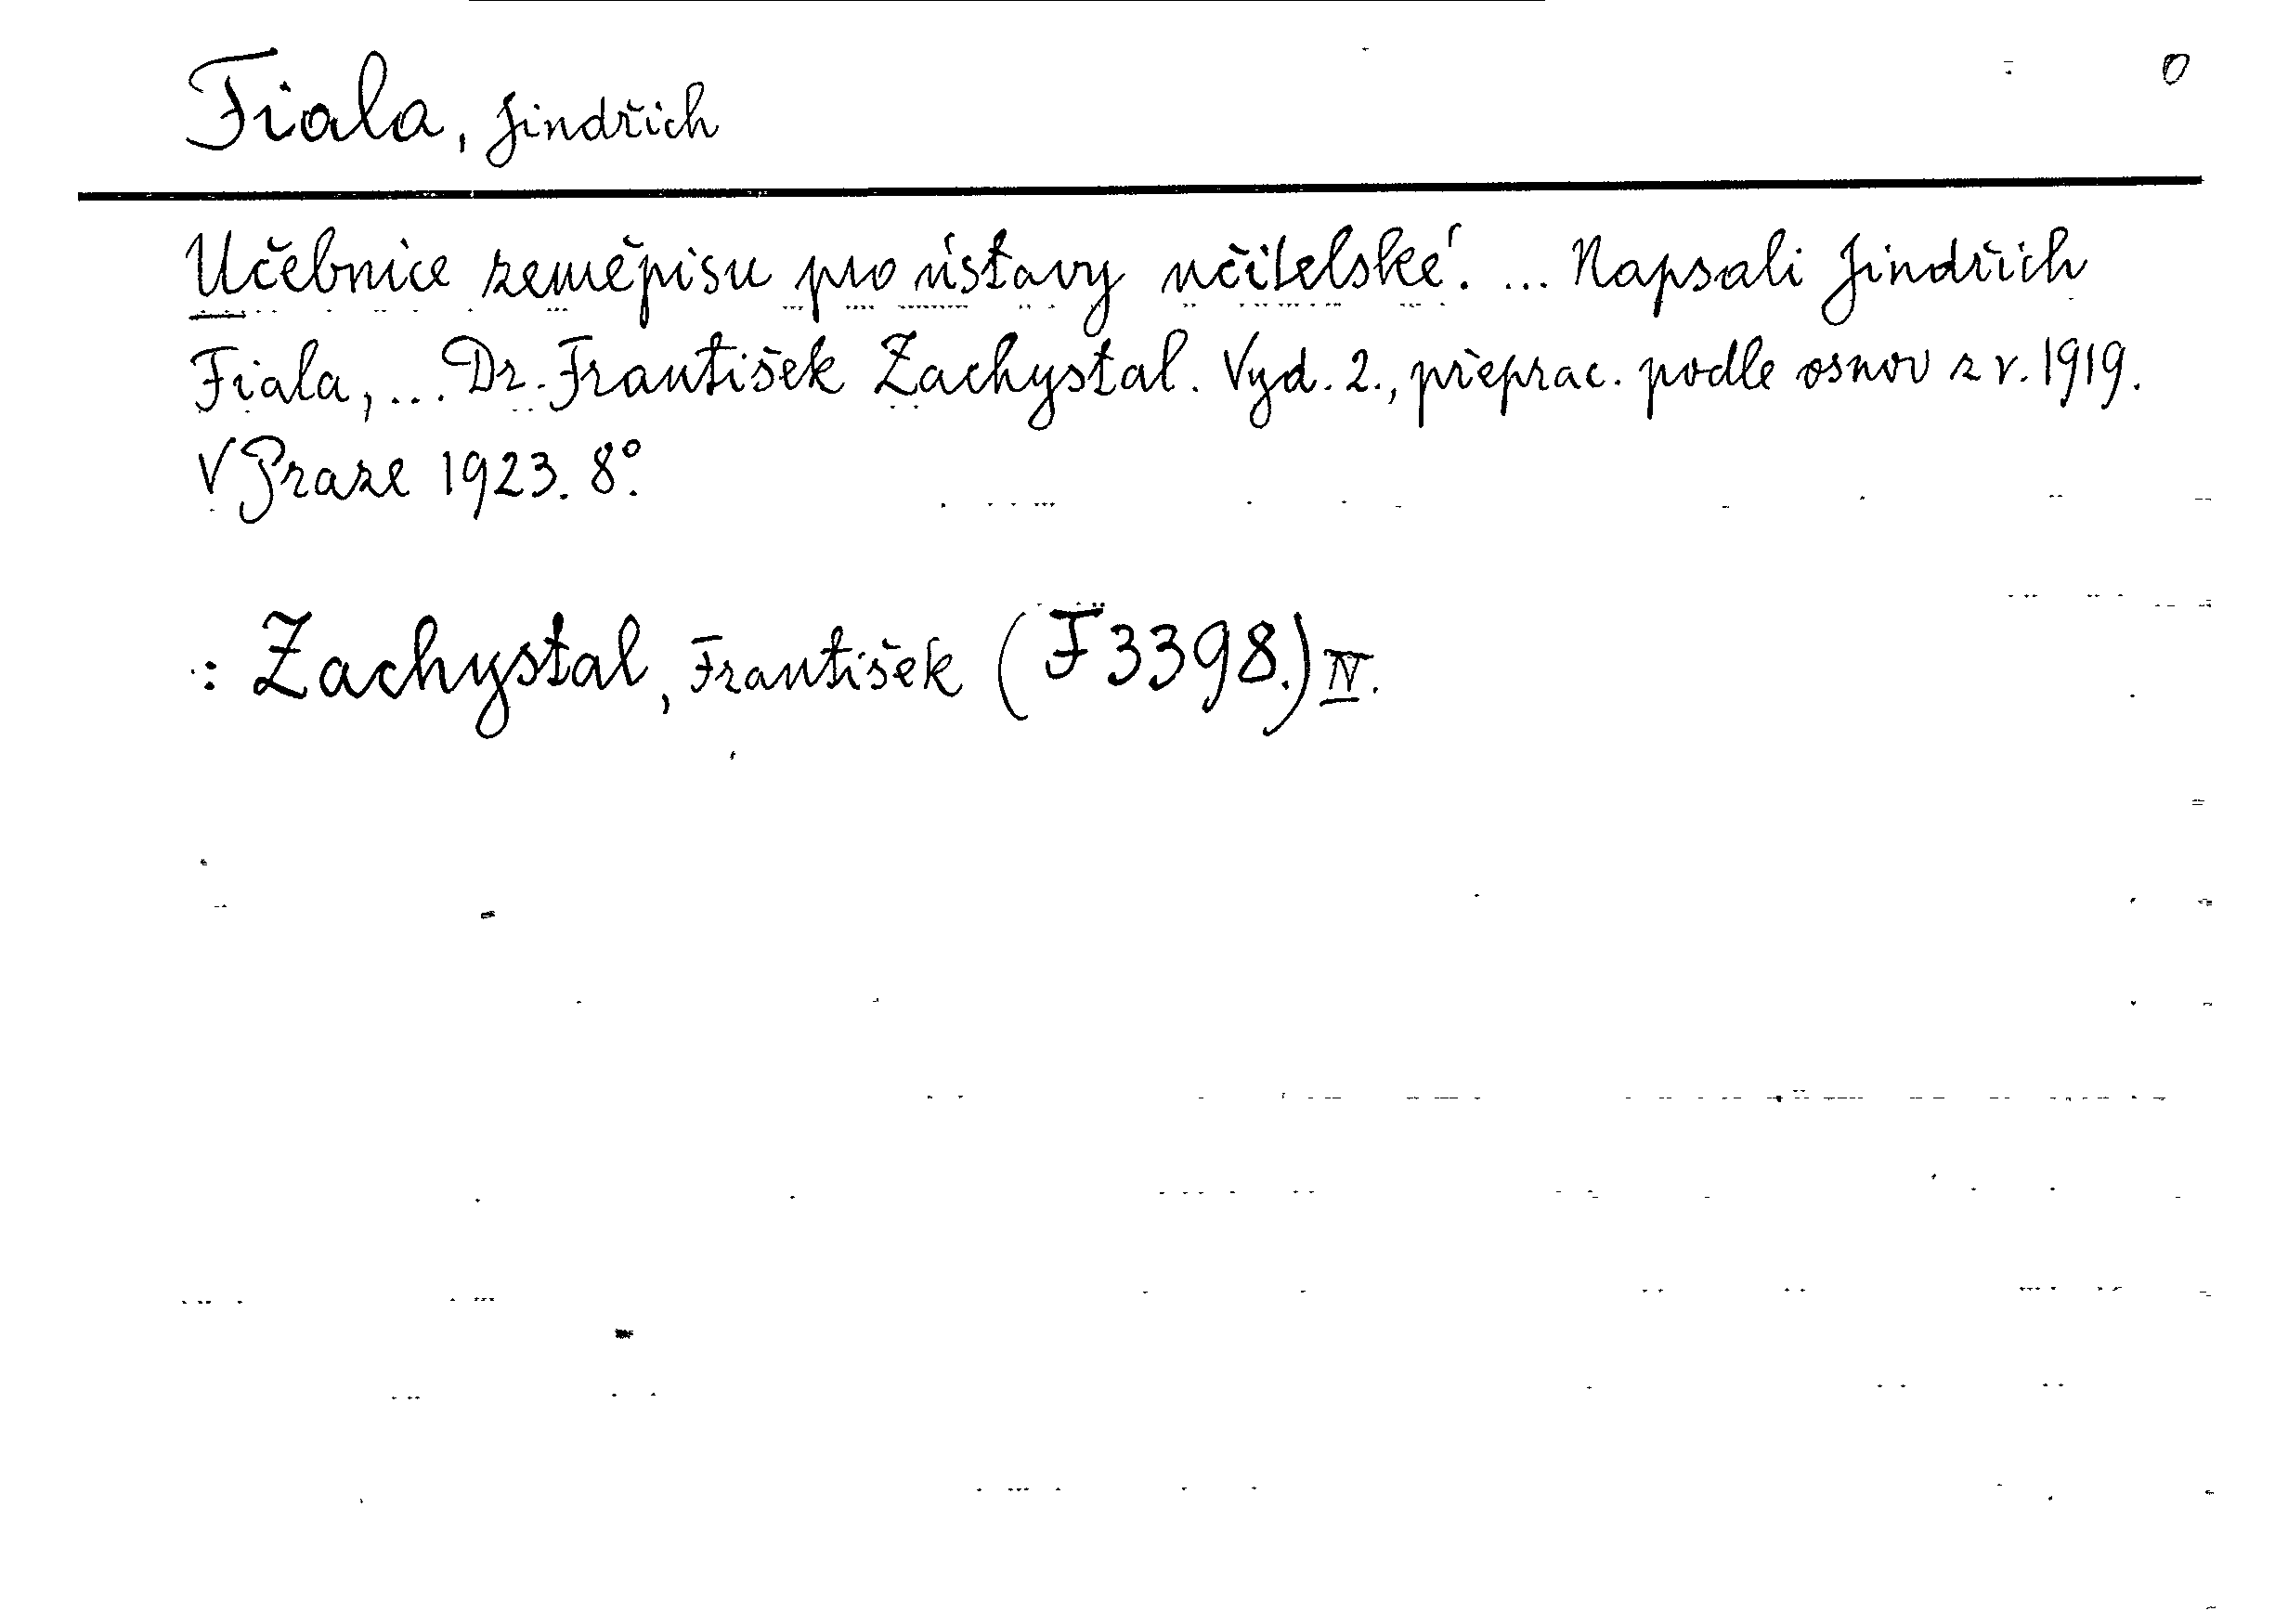 Fiala, Jindřich
0
Učebnice zeměpisu pro ústavy učitelské. ... Napsali Jindřich
Fiala, ... Dr. František Zachystal. Vyd. 2., přeprac. podle osnov z r. 1919.
V Praze 1923. 8°.
: Zachystal, František (F3398.) IV.